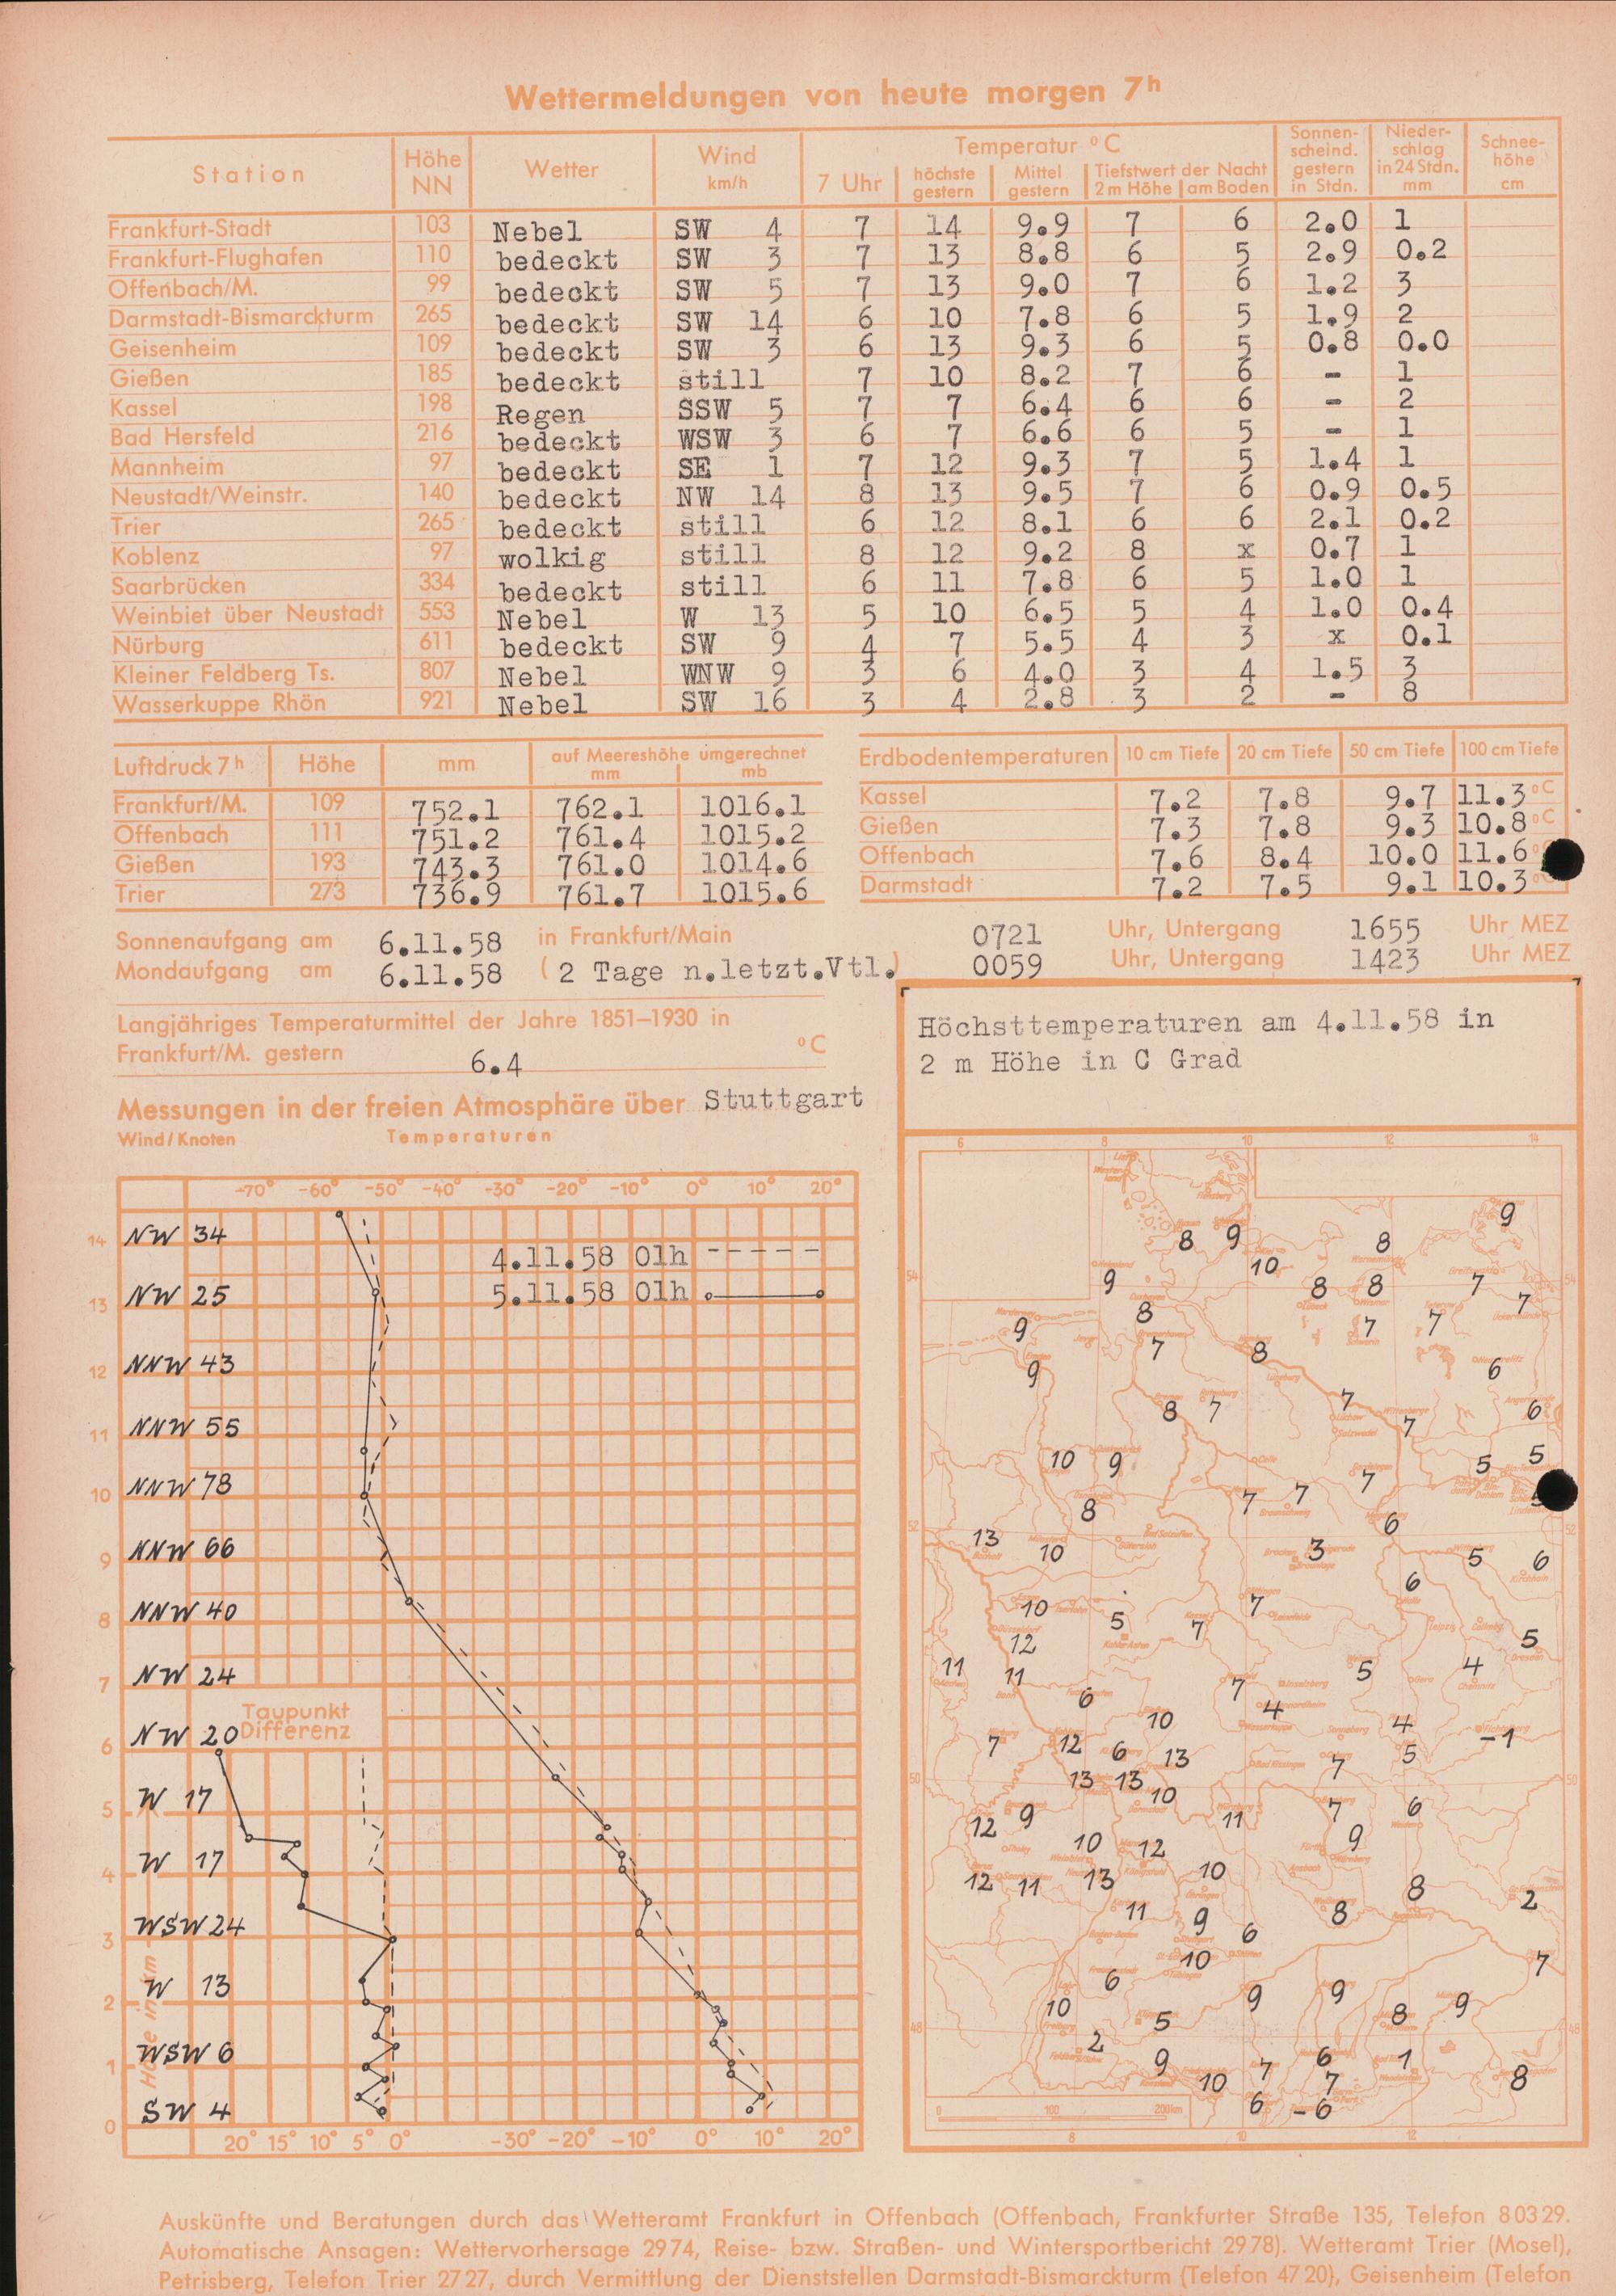 Wettermeldungen von heute morgen 7h
Station Höhe NN Wetter Wind km/h Temperatur °C Sonnen-scheind. gestern in Stdn. Nieder-schlag in 24 Stdn. mm Schnee-höhe cm
7 Uhr höchste gestern Mittel gestern Tiefstwert der Nacht 2 m Höhe am Boden
Frankfurt-Stadt 103 Nebel SW 4 7 14 9.9 7 6 2.0 1
Frankfurt-Flughafen 110 bedeckt SW 3 7 13 8.8 6 5 2.9 0.2
Offenbach/M. 99 bedeckt SW 5 7 13 9.0 7 6 1.2 3
Darmstadt-Bismarckturm 265 bedeckt SW 14 6 10 7.8 6 5 1.9 2
Geisenheim 109 bedeckt SW 3 6 13 9.3 6 5 0.8 0.0
Gießen 185 bedeckt still 7 10 8.2 7 6 - 1
Kassel 198 Regen SSW 5 7 7 6.4 6 6 - 2
Bad Hersfeld 216 bedeckt WSW 3 6 7 6.6 6 5 - 1
Mannheim 97 bedeckt SE 1 7 12 9.3 7 5 1.4 1
Neustadt/Weinstr. 140 bedeckt NW 14 8 13 9.5 7 6 0.9 0.5
Trier 265 bedeckt still 6 12 8.1 6 6 2.1 0.2
Koblenz 97 wolkig still 8 12 9.2 8 x 0.7 1
Saarbrücken 334 bedeckt still 6 11 7.8 6 5 1.0 1
Weinbiet über Neustadt 553 Nebel W 13 5 10 6.5 5 4 1.0 0.4
Nürburg 611 bedeckt SW 9 4 7 5.5 4 3 x 0.1
Kleiner Feldberg Ts. 807 Nebel WNW 9 3 6 4.0 3 4 1.5 3
Wasserkuppe Rhön 921 Nebel SW 16 3 4 2.8 3 2 - 8
Luftdruck 7h Höhe mm auf Meereshöhe umgerechnet mm mb
Frankfurt/M. 109 752.1 762.1 1016.1
Offenbach 111 751.2 761.4 1015.2
Gießen 193 743.3 761.0 1014.6
Trier 273 736.9 761.7 1015.6
Erdbodentemperaturen 10 cm Tiefe 20 cm Tiefe 50 cm Tiefe 100 cm Tiefe
Kassel 7.2 7.8 9.7 11.3 °C
Gießen 7.3 7.8 9.3 10.8 °C
Offenbach 7.6 8.4 10.0 11.6
Darmstadt 7.2 7.5 9.1 10.3 °C
Sonnenaufgang am 6.11.58 in Frankfurt/Main 0721 Uhr, Untergang 1655 Uhr MEZ
Mondaufgang am 6.11.58 (2 Tage n.letzt.Vtl.) 0059 Uhr, Untergang 1423 Uhr MEZ
Langjähriges Temperaturmittel der Jahre 1851–1930 in
Frankfurt/M. gestern 6.4 °C
Messungen in der freien Atmosphäre über Stuttgart
Wind/Knoten Temperaturen
-70° -60° -50° -40° -30° -20° -10° 0° 10° 20°
14 NW 34
4.11.58 01h
13 NW 25
5.11.58 01h
12 NNW 43
11 NNW 55
10 NNW 78
9 NNW 66
8 NNW 40
7 NW 24
Taupunkt
Differenz
6 NW 20
5 W 17
4 W 17
3 WSW 24
2 W 13
1 WSW 6
0 SW 4
Höhe in km
20° 15° 10° 5° 0° -30° -20° -10° 0° 10° 20°
Höchsttemperaturen am 4.11.58 in
2 m Höhe in C Grad
6 8 10 12 14
9
8 9 8
10
54 9 8 8 7 54
8 7
9 7 7
7 8
9 6
8 7 7 7 6
10 9 7 5 5
8 7 7
52 13 10 3 6 5 6 52
6
10 5 7 7
12 5
11 11 7 5 4
6 4
10 4
7 12 6 13 5 -1
50 13 13 7 50
10
12 9 11 7 6
10 12 9
12 11 13 10 8 2
11 9 6 8
10 7
6
10 9 9 8 9
48 5 48
2 9 7 6 1
10 7 8
6 -6
0 100 200km
8 10 12
Auskünfte und Beratungen durch das Wetteramt Frankfurt in Offenbach (Offenbach, Frankfurter Straße 135, Telefon 8 03 29.
Automatische Ansagen: Wettervorhersage 29 74, Reise- bzw. Straßen- und Wintersportbericht 29 78). Wetteramt Trier (Mosel),
Petrisberg, Telefon Trier 27 27, durch Vermittlung der Dienststellen Darmstadt-Bismarckturm (Telefon 47 20), Geisenheim (Telefon